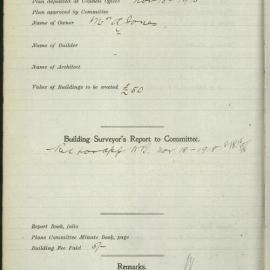 Plan deposited at Council Office Nov 18 - 1918
Plan approved by Committee
Name of Owner Mr A Jones
Name of Builder
Name of Architect
Value of Buildings to be erected £50
Building Surveyor's Report to Committee.
Nov 18 - 1918
Report Book, folio
Plans Committee Minute Book, page
Building Fee Paid 5/-
Remarks.